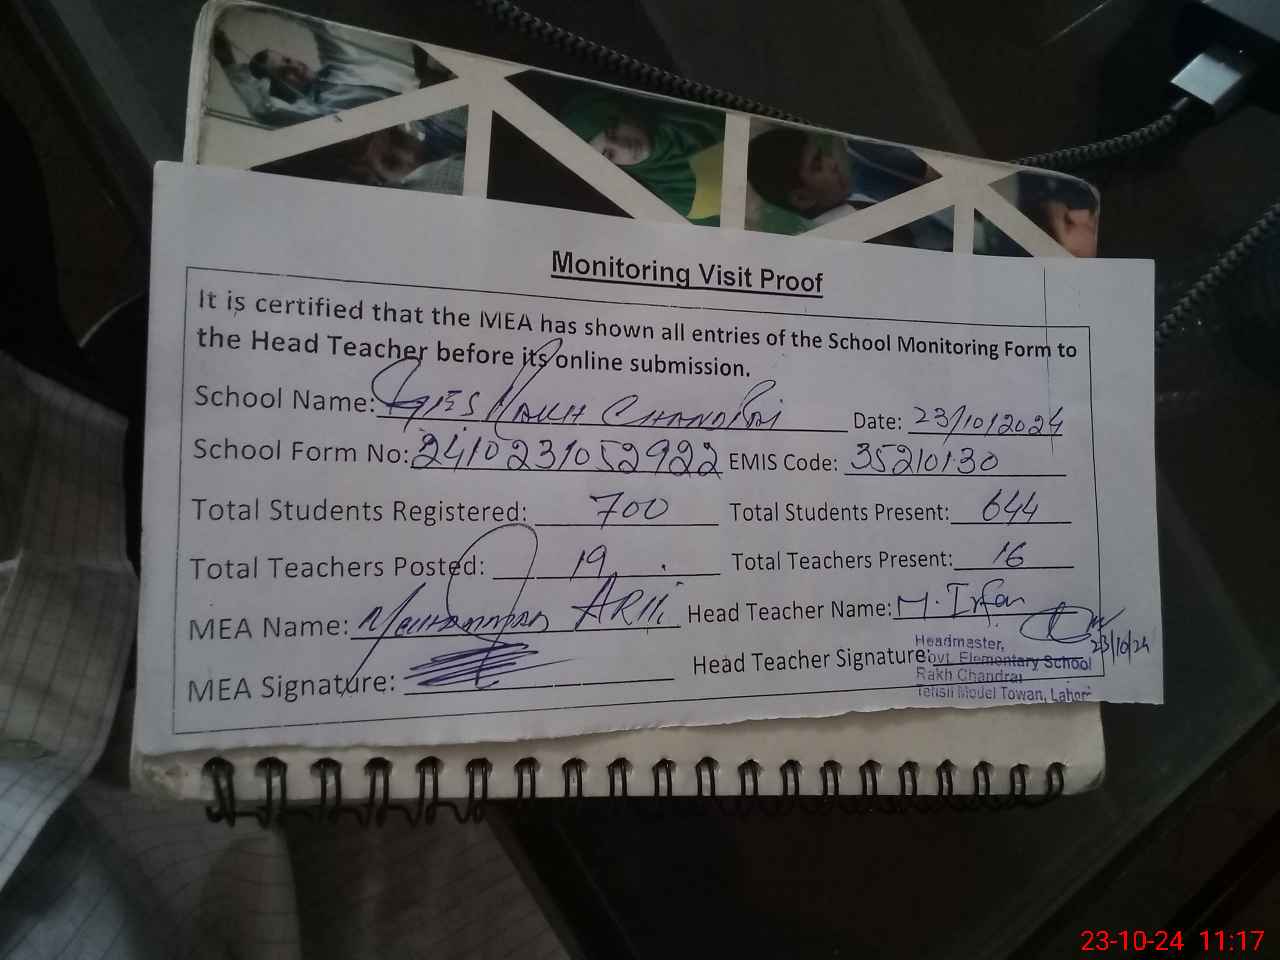 Monitoring Visit Proof
It is certified that the MEA has shown all entries of the School Monitoring Form to
the Head Teacher before its online submission.
School Name: GES RAKH CHANDRAI Date: 23/10/2024
School Form No: 2410231052922 EMIS Code: 35210130
Total Students Registered: 700 Total Students Present: 644
Total Teachers Posted: 19 Total Teachers Present: 16
MEA Name: Muhammad Head Teacher Name: M. Irfan
23/10/24
MEA Signature: Head Teacher Signature:
Headmaster,
Govt. Elementary School
Rakh Chandrai
Tehsil Model Towan, Lahor
23-10-24 11:17